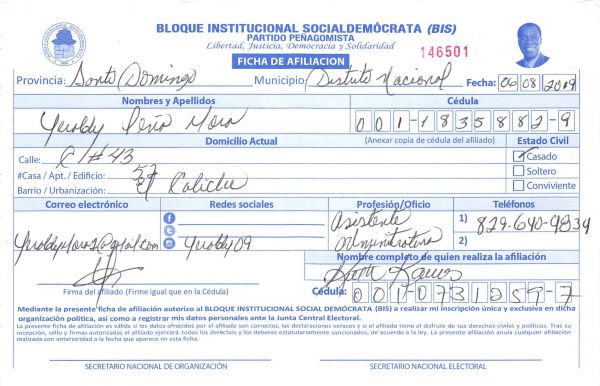 BLOQUE INSTITUCIONAL SOCIALDEMÓCRATA (BIS)
PARTIDO PEÑAGOMISTA
Libertad, Justicia, Democracia y Solidaridad
FICHA DE AFILIACION
146501
Provincia: Santo Domingo Municipio: Distrito Nacional Fecha: 06 08 2019
Nombres y Apellidos Cédula
Yeroldy Peña Mora 001-1835882-9
Domicilio Actual (Anexar copia de cédula del afiliado) Estado Civil
Calle: C/#43 Casado
#Casa / Apt. / Edificio: 57 Soltero
Barrio / Urbanización: El Caliche Conviviente
Correo electrónico Redes sociales Profesión/Oficio Teléfonos
Asistente 1) 829-640-9839
Yeroldy09 Administrativa 2)
Nombre completo de quien realiza la afiliación
Ramos
Firma del afiliado (Firme igual que en la Cédula) Cédula: 001-0731259-7
Mediante la presente ficha de afiliación autorizo al BLOQUE INSTITUCIONAL SOCIAL DEMÓCRATA (BIS) a realizar mi inscripción única y exclusiva en dicha
organización política, así como a registrar mis datos personales ante la Junta Central Electoral.
La presente ficha de afiliación es válida si los datos ofrecidos por el afiliado son correctos, las declaraciones veraces y si el afiliado tiene el disfrute de sus derechos civiles y políticos. Tras su
recepción, sello y firmas autorizadas el afiliado ejercerá todos los derechos y los deberes estatutariamente sancionados, de acuerdo a la ley. La presente afiliación anula cualquier afiliación
realizada con anterioridad a la fecha que aparece en esta ficha.
SECRETARIO NACIONAL DE ORGANIZACIÓN SECRETARIO NACIONAL ELECTORAL